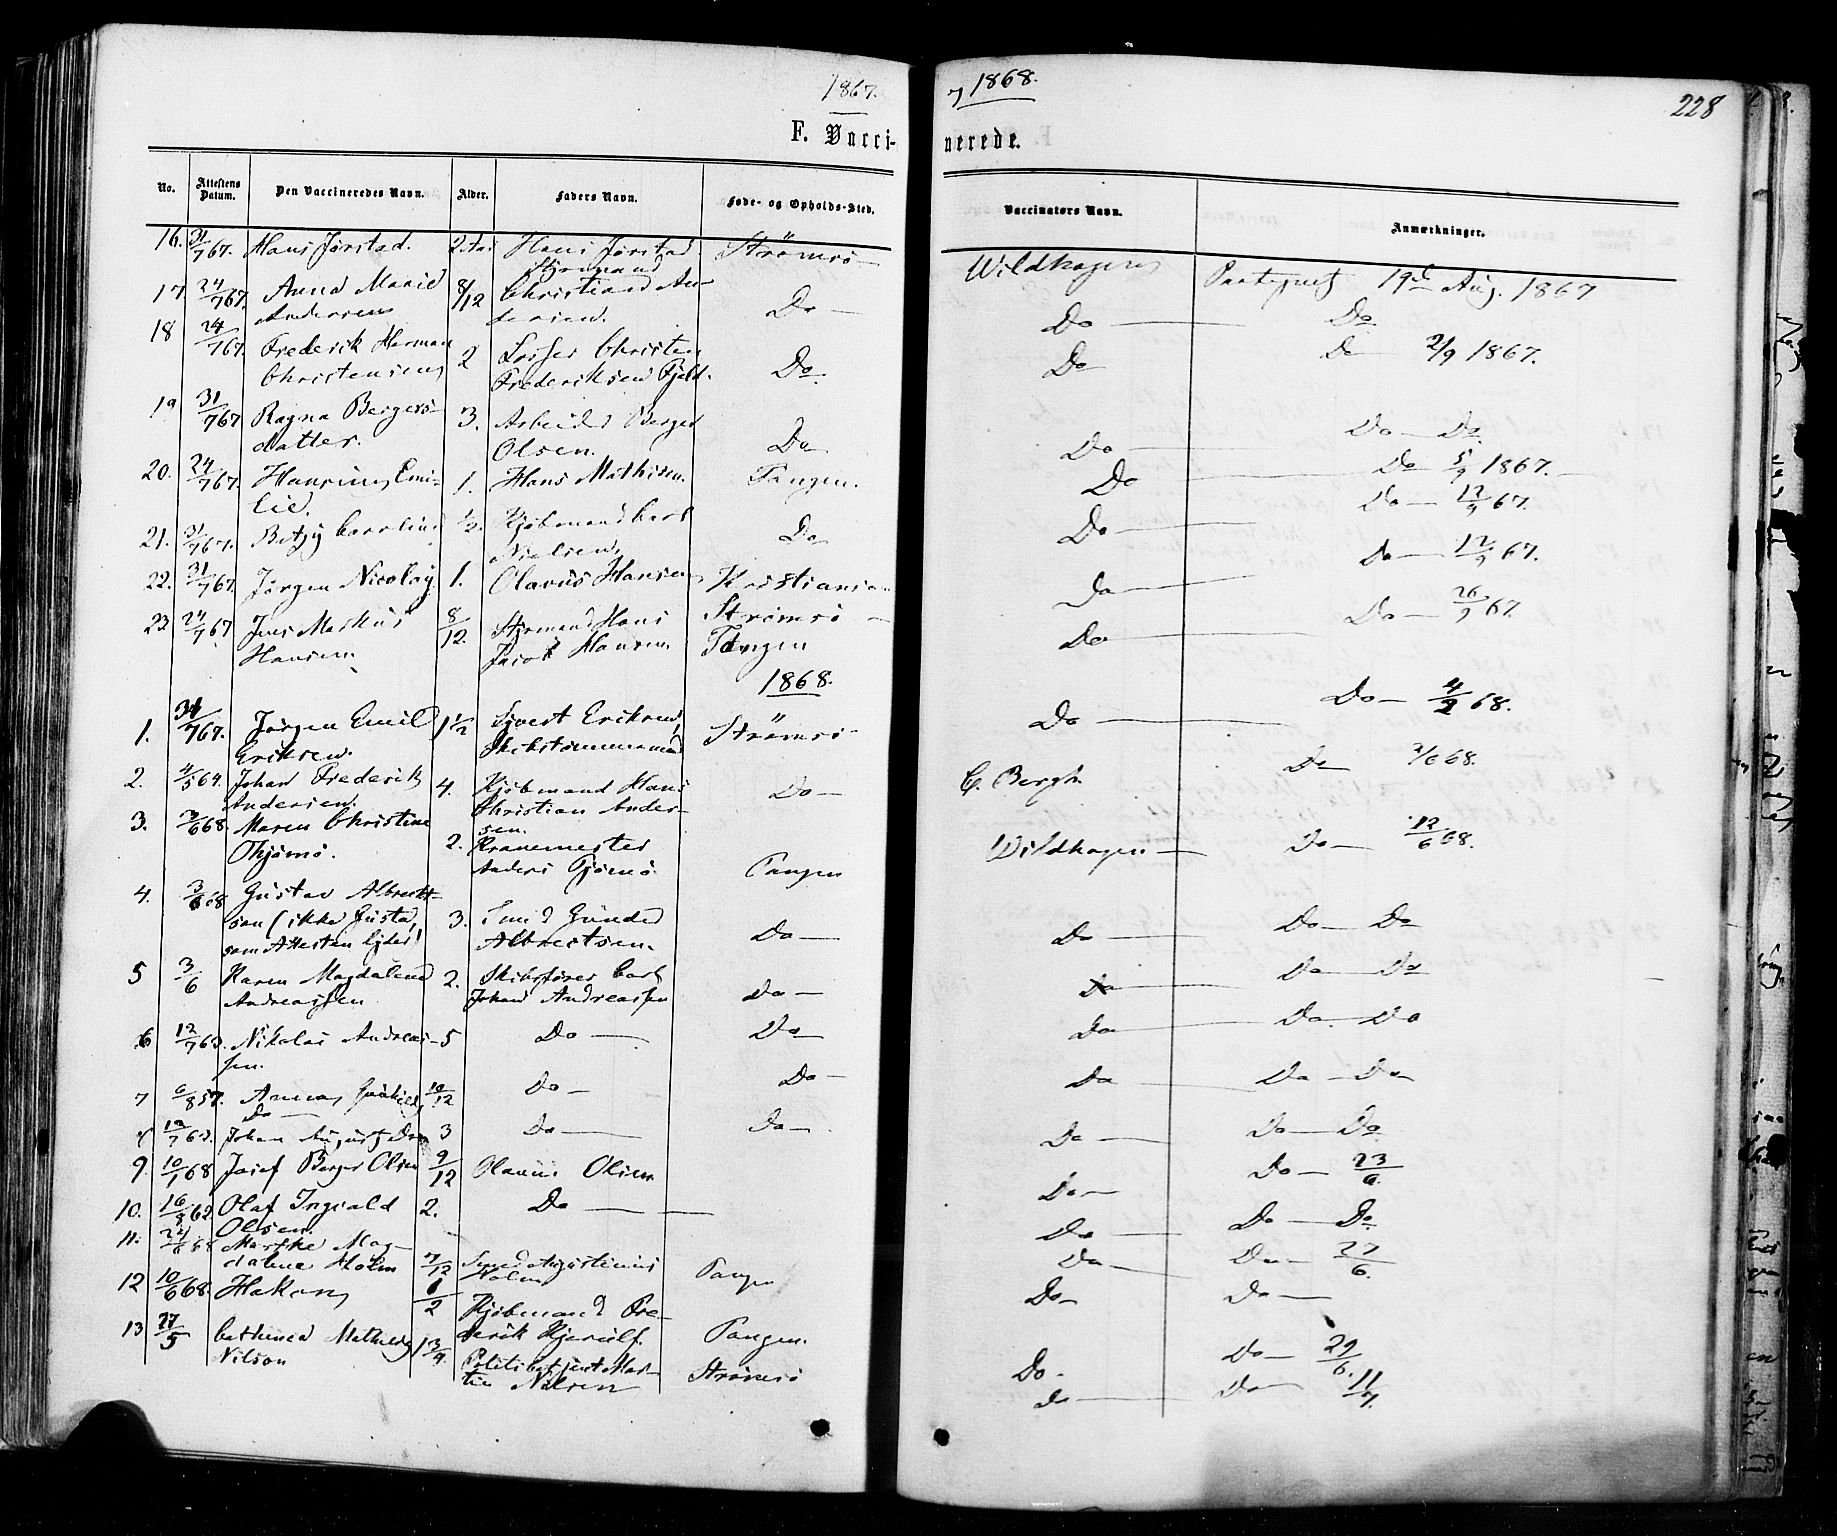 1867. 1868.
228
F. Vacci- nerede.
No. Attestens Datum. Den Vaccineredes Navn. Alder. Faders Navn. Føde- og Opholds-Sted. Vaccinators Navn. Anmærkninger.
16. 31/7 67. Hans Jørstad. 2. Hans Jørstad Strömsö Wildhagen 19d Aug. 1867
Styrmand
17 24/7 67. Anna Marie 8/12 Christian An- Do Do Do
Andersen dersen.
18 24/7 67. Frederik Herman 2 Losser Christen Do. Do Do 2/9 1867.
Christensen Frederiksen Fjeld.
19 31/7 67 Ragna Bergers- 3. Arbeider Berger Do Do Do Do
datter. Olsen.
20. 24/7 67. Hansine Emi- 1. Hans Mathisen. Tangen. Do Do 5/9 1867.
lie.
21. 31/7 67. Betzy Caroline 1/2. Kjøbmand Carl Do Do Do 12/9 67.
Nielsen
22. 31/7 67. Jørgen Nicolay 1. Olavus Hansen Kristiania Do Do 12/9 67.
23 24/7 67 Jens Markus 8/12. Styrmand Hans Strömsö Do Do 26/9 67.
Hansen Jacob Hansen Tangen
1868.
1. 31/7 67. Jørgen Emil 1 1/2 Sivert Eriksen, Strömsö Do Do 4/2 68.
Eriksen. Skibstømmermand
2. 4/5 64. Johan Frederik 4. Kjøbmand Hans Do C. Bergh Do 2/6 68.
Andersen. Christian Ander-
sen.
3. 3/6 68. Maren Christine 2. Kranemester Tangen Wildhagen Do 12/6 68.
Thjømø. Anders Tjømø.
4. 3/6 68 Gustav Albrekt- 3. Smed Gunder Do Do Do Do
sen (ikke Gusta, Albrectsen.
som Attesten lyder)
5 3/6 Karen Magdalena 2. Skibsfører Carl Do Do Do Do
Andreassen Johan Andreassen
6 12/7 63. Nikolai Andreas- 5 Do Do Do Do Do
sen.
7 6/8 57. Anna 10/12 Do Do Do Do Do
Do
8 12/7 63. Johan August Do 3 Do Do Do Do Do
9. 10/1 68 Josef Berger Olsen 9/12 Olavus Olsen Do Do 23/6.
10. 16/8 62 Olaf Ingvald 2. Do Do Do Do
Olsen.
11. Marthe Mag- 7/12 Smed Augustinius Do Do 27/6.
dalene Holm Holm
12 10/6 68. Hakon 1/2 Kjøbmand Fre- Tangen Do Do
derik Hjerulf. Tangen. Do Do 29/6.
13 27/5 Cathinca Mathilde 1 3/4. Politibetjent Mar- Strömsö Do Do 11/7.
Nilson tin Nilsen